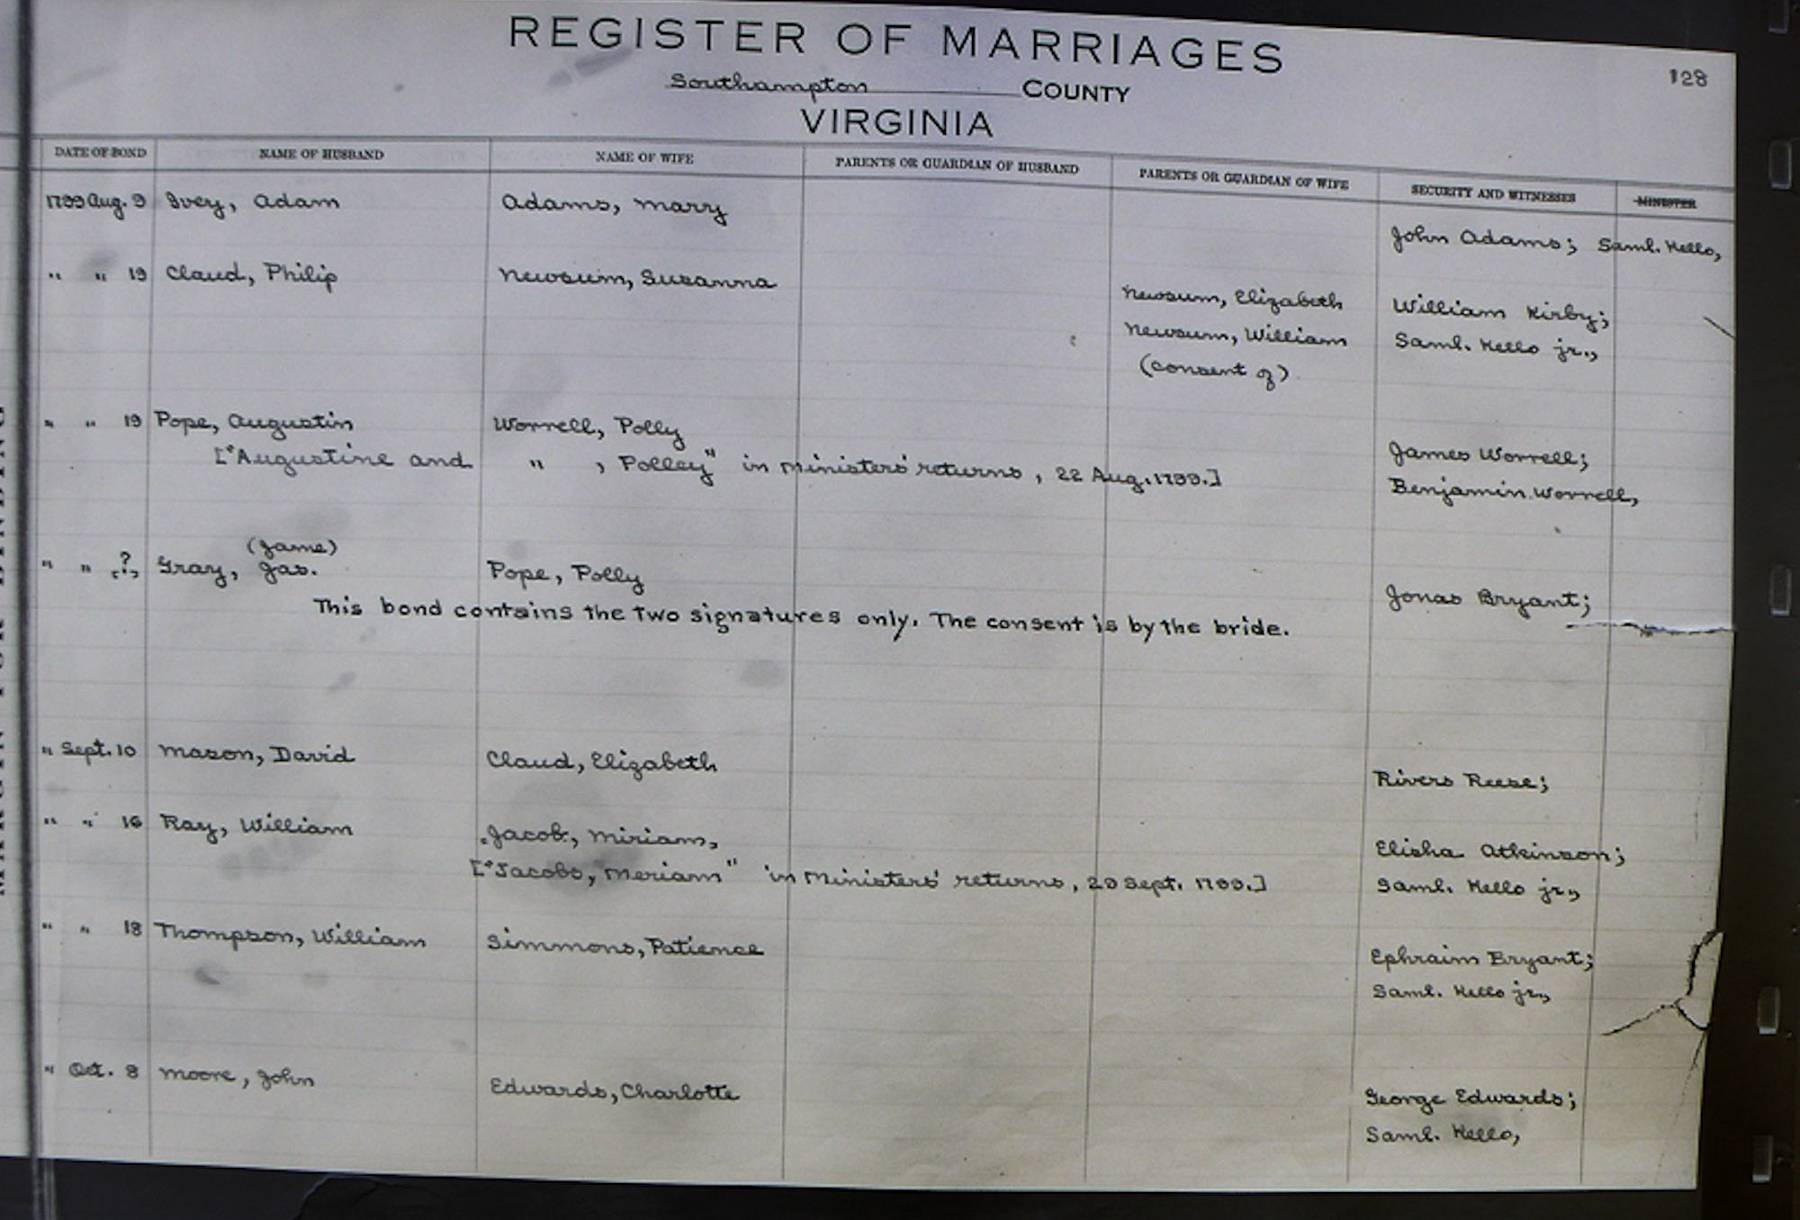 REGISTER OF MARRIAGES
128
Southampton COUNTY
VIRGINIA
DATE OF BOND NAME OF HUSBAND NAME OF WIFE PARENTS OR GUARDIAN OF HUSBAND PARENTS OR GUARDIAN OF WIFE SECURITY AND WITNESSES MINISTER
1799 Aug. 9 Ivey, Adam Adams, Mary
John Adams; Saml. Kello,
" " 19 Claud, Philip Newsum, Susanna
Newsum, Elizabeth William Kirby;
Newsum, William Saml. Kello jr.,
(consent of)
" " 19 Pope, Augustin Worrell, Polly
James Worrell;
["Augustine and " , Polley" in Ministers' returns, 22 Aug. 1799.]
Benjamin Worrell,
(Jame)
" " ? Gray, Jas. Pope, Polly
Jonas Bryant;
This bond contains the two signatures only. The consent is by the bride.
" Sept. 10 Mason, David Claud, Elizabeth
Rivers Reese;
" " 16 Ray, William Jacob, Miriam,
Elisha Atkinson;
["Jacobs, Meriam" in Ministers' returns, 29 Sept. 1799.]
Saml. Kello jr.,
" " 18 Thompson, William Simmons, Patience
Ephraim Bryant;
Saml. Kello jr.,
" Oct. 8 Moore, John Edwards, Charlotte
George Edwards;
Saml. Kello,